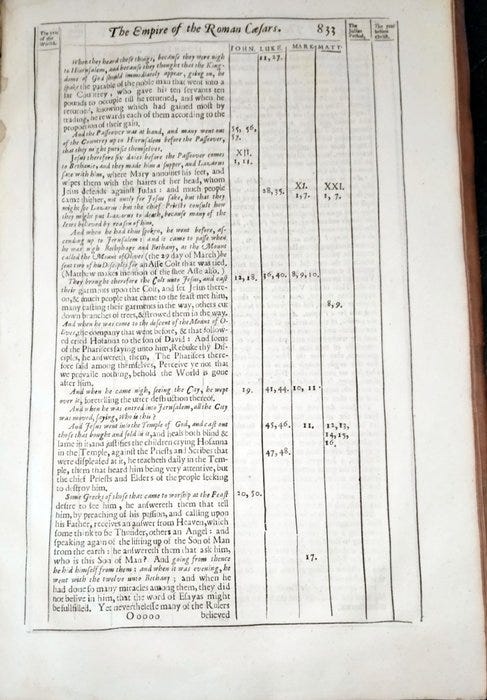 The year of the World.
The Empire of the Roman Cæsars.
833
The Julian Period.
The year before Christ.
JOHN. LUKE. MARK MATT.
When they heard these things, because they were nigh
to Hierusalem, and because they thought that the King-
dome of God should immediately appear, going on, he
spake the parable of the noble man that went into a
far Countrey, who gave his ten servants ten
pounds to occupie till he returned, and when he
returned, knowing which had gained most by
trading, he rewards each of them according to the
proportion of their gain.
11,27.
And the Passeover was at hand, and many went out
of the Countrey up to Hierusalem before the Passeover,
that they might purifie themselves.
55, 56,
57.
Jesus therefore six daies before the Passeover comes
to Bethanie, and they made him a supper, and Lazarus
sate with him, where Mary annoints his feet, and
wipes them with the haires of her head, whom
Jesus defends against Judas: and much people
came thither, not onely for Jesus sake, but that they
might see Lazarus: but the chief Priests consult how
they might put Lazarus to death, because many of the
Jews believed by reason of him.
XII.
1, 11.
And when he had thus spoken, he went before, as-
cending up to Jerusalem: and it came to passe when
he was nigh Bethphage and Bethany, at the Mount
called the Mount of Olives (the 29 day of March) he
sent two of his Disciples for an Asse Colt that was tied.
(Matthew makes mention of the shee Asse also.)
28, 35.
XI.
1, 7.
XXI.
1, 7.
They brought therefore the Colt unto Jesus, and cast
their garments upon the Colt, and set Jesus there-
on, & much people that came to the feast met him,
many casting their garments in the way, others cut
down branches of trees, & strowed them in the way.
12,18. 36,40. 8,9,10.
8,9.
And when he was come to the descent of the Mount of O-
lives, the company that went before, & that follow-
ed cried Hosanna to the son of David: And some
of the Pharisees saying unto him, Rebuke thy Dis-
ciples, he answereth them, The Pharisees there-
fore said among themselves, Perceive ye not that
we prevaile nothing, behold the World is gone
after him.
And when he came nigh, seeing the City, he wept
over it, foretelling the utter destruction thereof.
19. 41,44. 10, 11.
And when he was entred into Jerusalem, all the City
was moved, saying, Who is this?
And Jesus went into the Temple of God, and cast out
those that bought and sold in it, and heals both blind &
lame in it, and justifies the children crying Hosanna
in the Temple, against the Priests and Scribes that
were displeased at it, he teacheth daily in the Tem-
ple, them that heard him being very attentive, but
the chief Priests and Elders of the people seeking
to destroy him.
45,46. 11, 12,13,
14,15,
16.
47,48.
Some Greeks of those that came to worship at the Feast
desire to see him, he answereth them that tell
him, by preaching of his passion, and calling upon
his Father, receives an answer from Heaven, which
some think to be Thunder, others an Angel: and
speaking again of the lifting up of the Son of Man
from the earth: he answereth them that ask him,
who is this Son of Man? And going from thence
he hid himself from them: and when it was evening, he
went with the twelve unto Bethany; and when he
had done so many miracles among them, they did
not belive in him, that the word of Esayas might
be fulfilled. Yet neverthelesse many of the Rulers
20, 50.
17.
Ooooo
believed